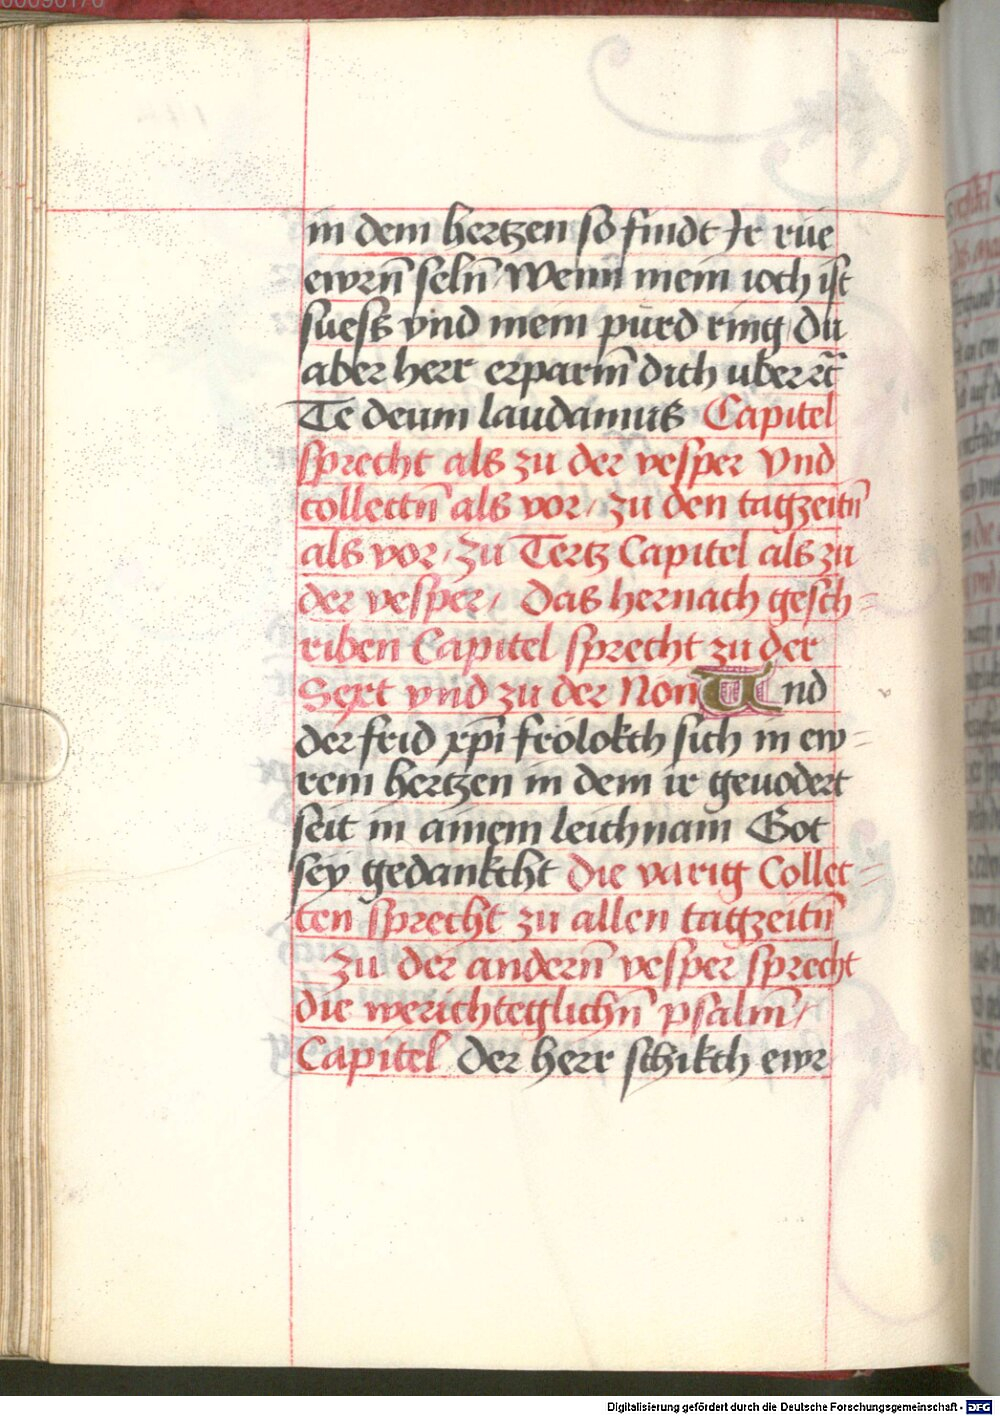 in dem hertzen so findt Ir rue
ewrn̄ seln̄ Wenn mein ioch ist
suess vnd mein purd ring / du
aber herr erparm̄ dich uber rc̄
Te deum laudamus Capitel
sprecht als zu der vesper Vnd
collectn̄ als vor / zu den tagzeitn̄
als vor / zu Tertz Capitel als zu
der vesper / Das hernach gesch=
riben Capitel sprecht zu der
Sext vnd zu der Non Und
der frid xp̄i frölokch sich in ew=
rem hertzen in dem ir geuodert
seit in ainem leichnam Got
sey gedankcht die varig Collec=
ten sprecht zu allen tagzeitn̄
Zu der andern̄ vesper sprecht
die werichteglichn̄ psalm̄ /
Capitel der herr schikch ewr
Digitalisierung gefördert durch die Deutsche Forschungsgemeinschaft - DFG